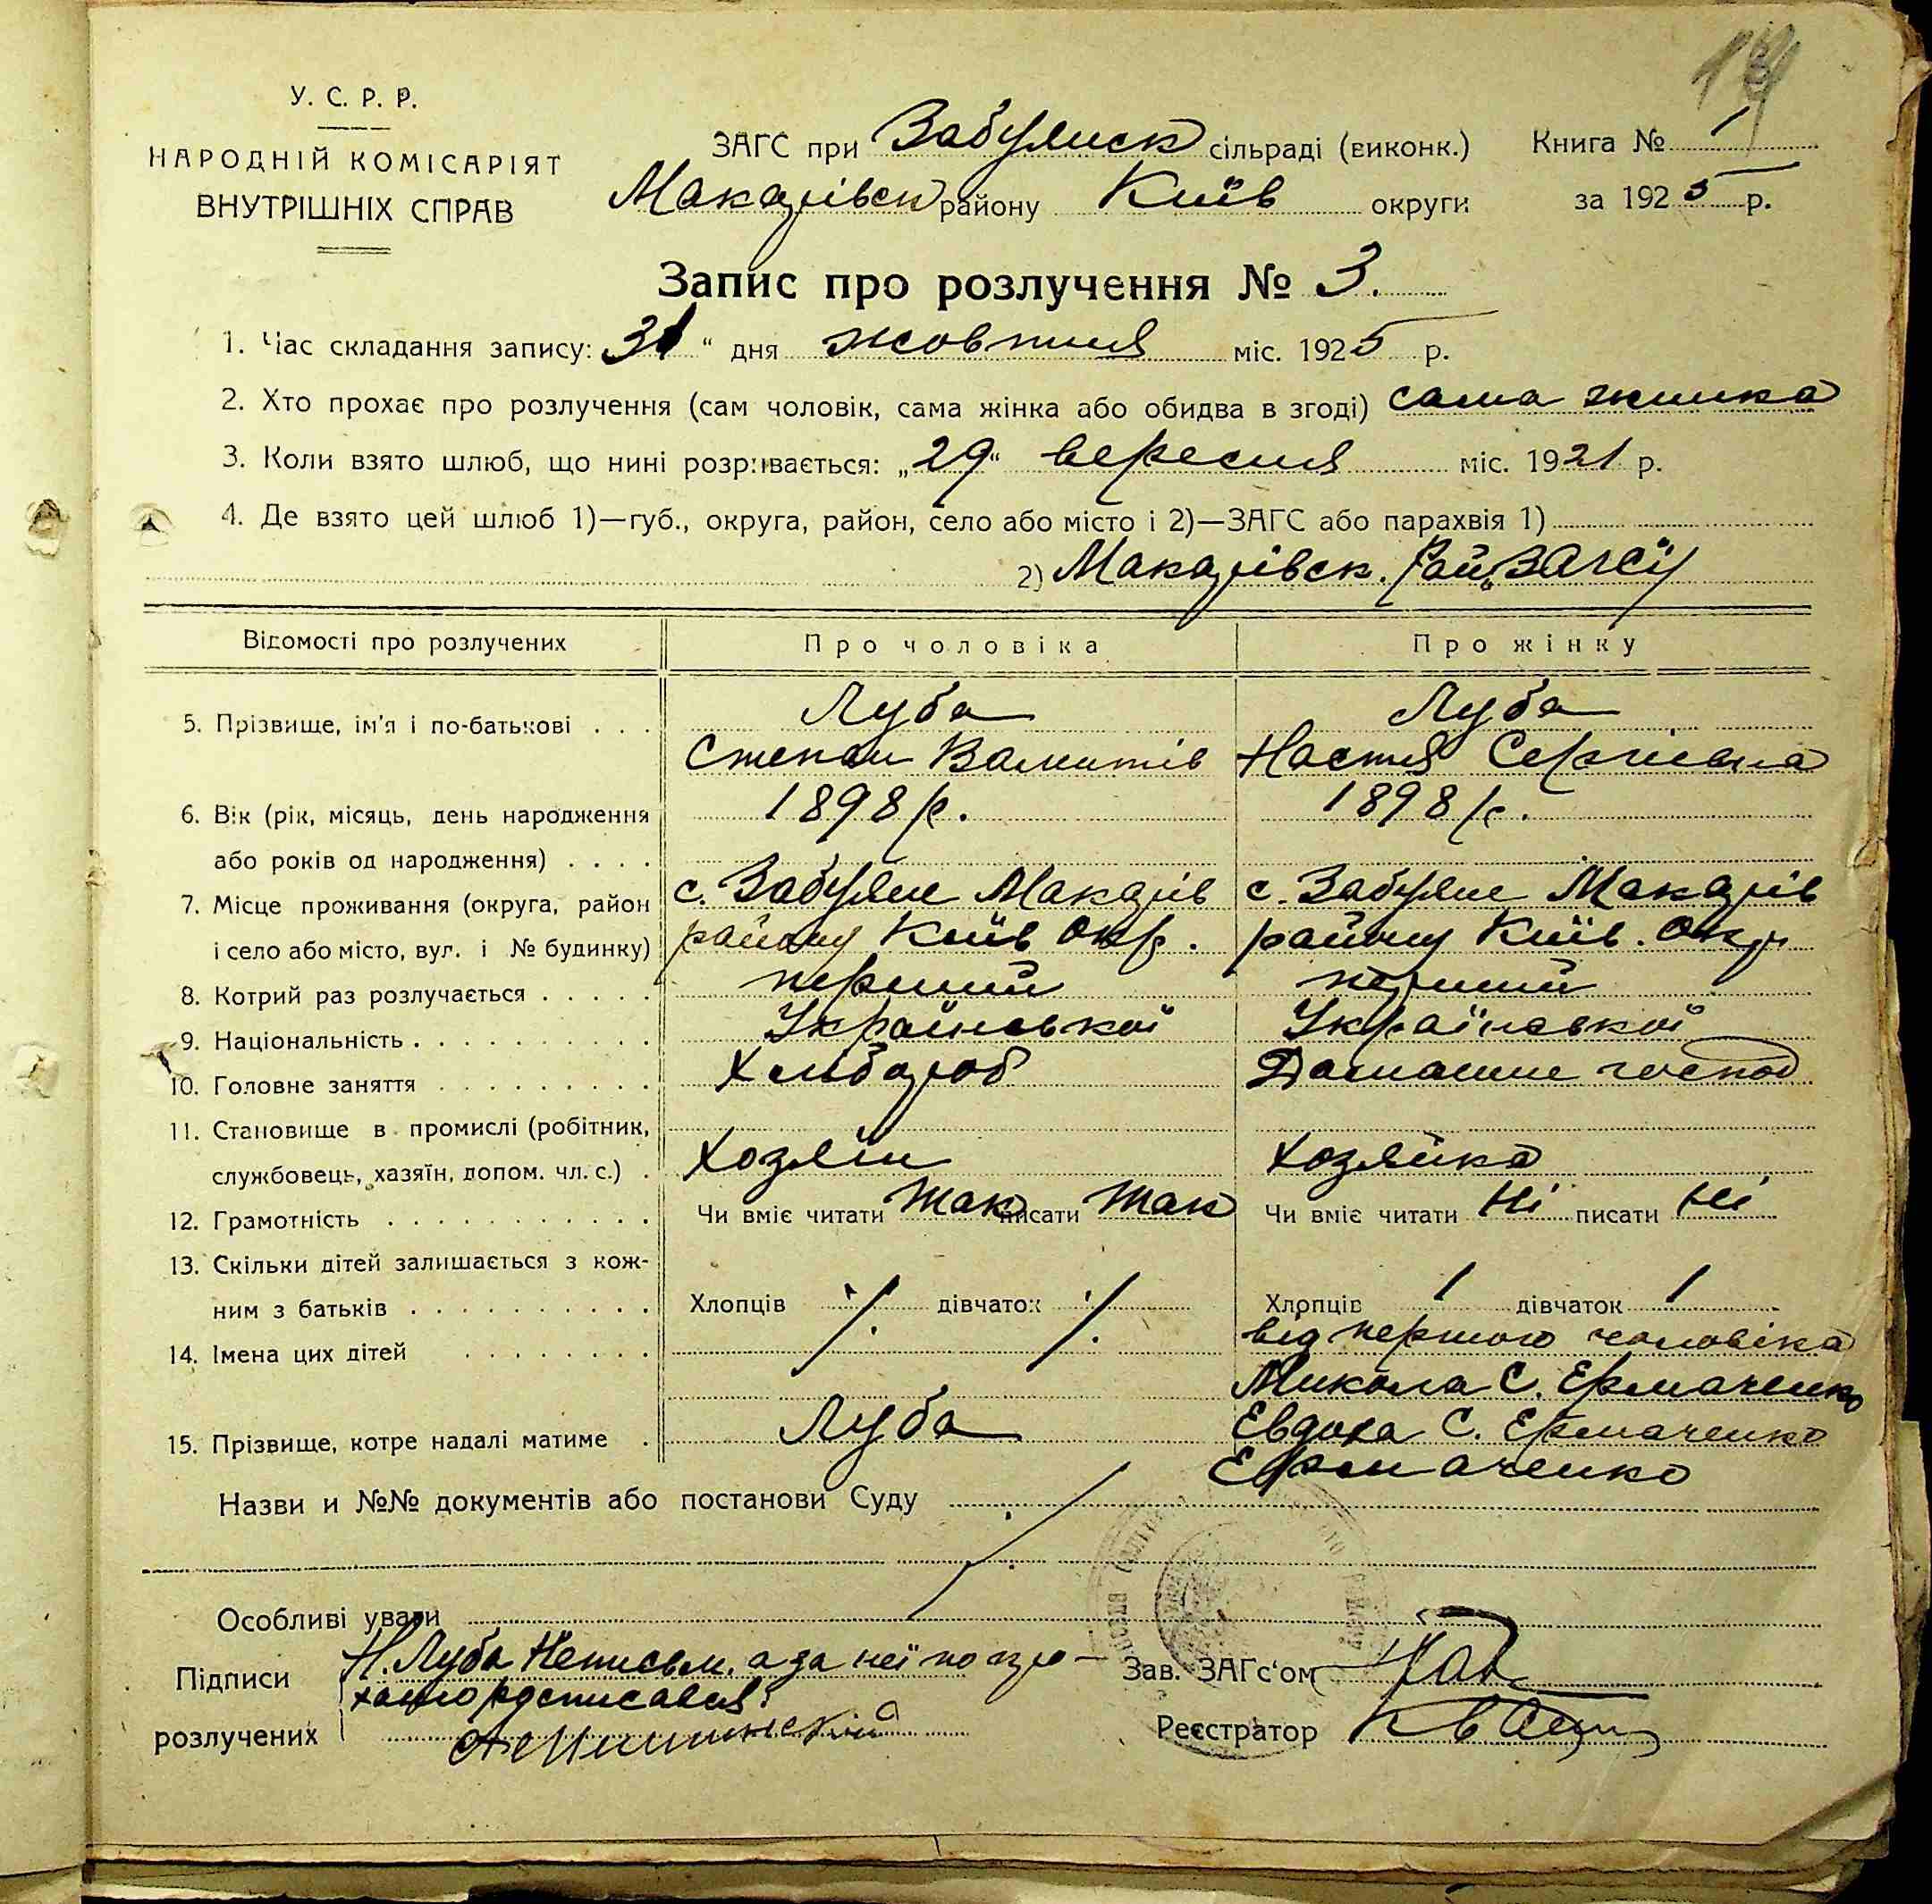 У. С. Р. Р.
НАРОДНІЙ КОМІСАРІЯТ
ВНУТРІШНІХ СПРАВ
ЗАГС при Забуянск сільраді (виконк.) Книга № 1
Макарівск району Київ округи за 1925 р.
Запис про розлучення № 3.
1. Час складання запису: 31 " дня жовтня міс. 1925 р.
2. Хто прохає про розлучення (сам чоловік, сама жінка або обидва в згоді) сама жинка
3. Коли взято шлюб, що нині розривається: „29" вересня міс. 1921 р.
4. Де взято цей шлюб 1)—губ., округа, район, село або місто і 2)—ЗАГС або парахвія 1)
2) Макарівск. Рай„ЗАГСї
Відомості про розлучених Про чоловіка Про жінку
5. Прізвище, ім'я і по-батькові . . . Луба Луба
Степан Вамитів Настя Сергієвна
6. Вік (рік, місяць, день народження 1898 р. 1898 р.
або років од народження) . . . .
7. Місце проживання (округа, район с. Забуяне Макарів с. Забуяне Макарів
і село або місто, вул. і № будинку) району Київ Окр. району Київ. Окр
8. Котрий раз розлучається . . . . . перший перший
9. Національність . . . . . . . . . . Української Української
10. Головне заняття . . . . . . . . . Хлібороб Домашне господ
11. Становище в промислі (робітник,
службовець, хазяїн, допом. чл. с.) . Хозяїн Хозяйка
12. Грамотність . . . . . . . . . . . Чи вміє читати так писати так Чи вміє читати Ні писати Ні
13. Скільки дітей залишається з кож-
ним з батьків . . . . . . . . . . Хлопців ·/. дівчаток ·/. Хлопців 1 дівчаток 1
14. Імена цих дітей . . . . . . . . від першого чоловіка
Микола С. Ермаченко
15. Прізвище, котре надалі матиме . Луба Евдоха С. Ермаченко
Ермаченко
Назви и №№ документів або постанови Суду
Особливі уваги
Підписи Н. Луба Неписьм. а за неї по про-
ханю росписався
розлучених
Зав. ЗАГс'ом
Реєстратор